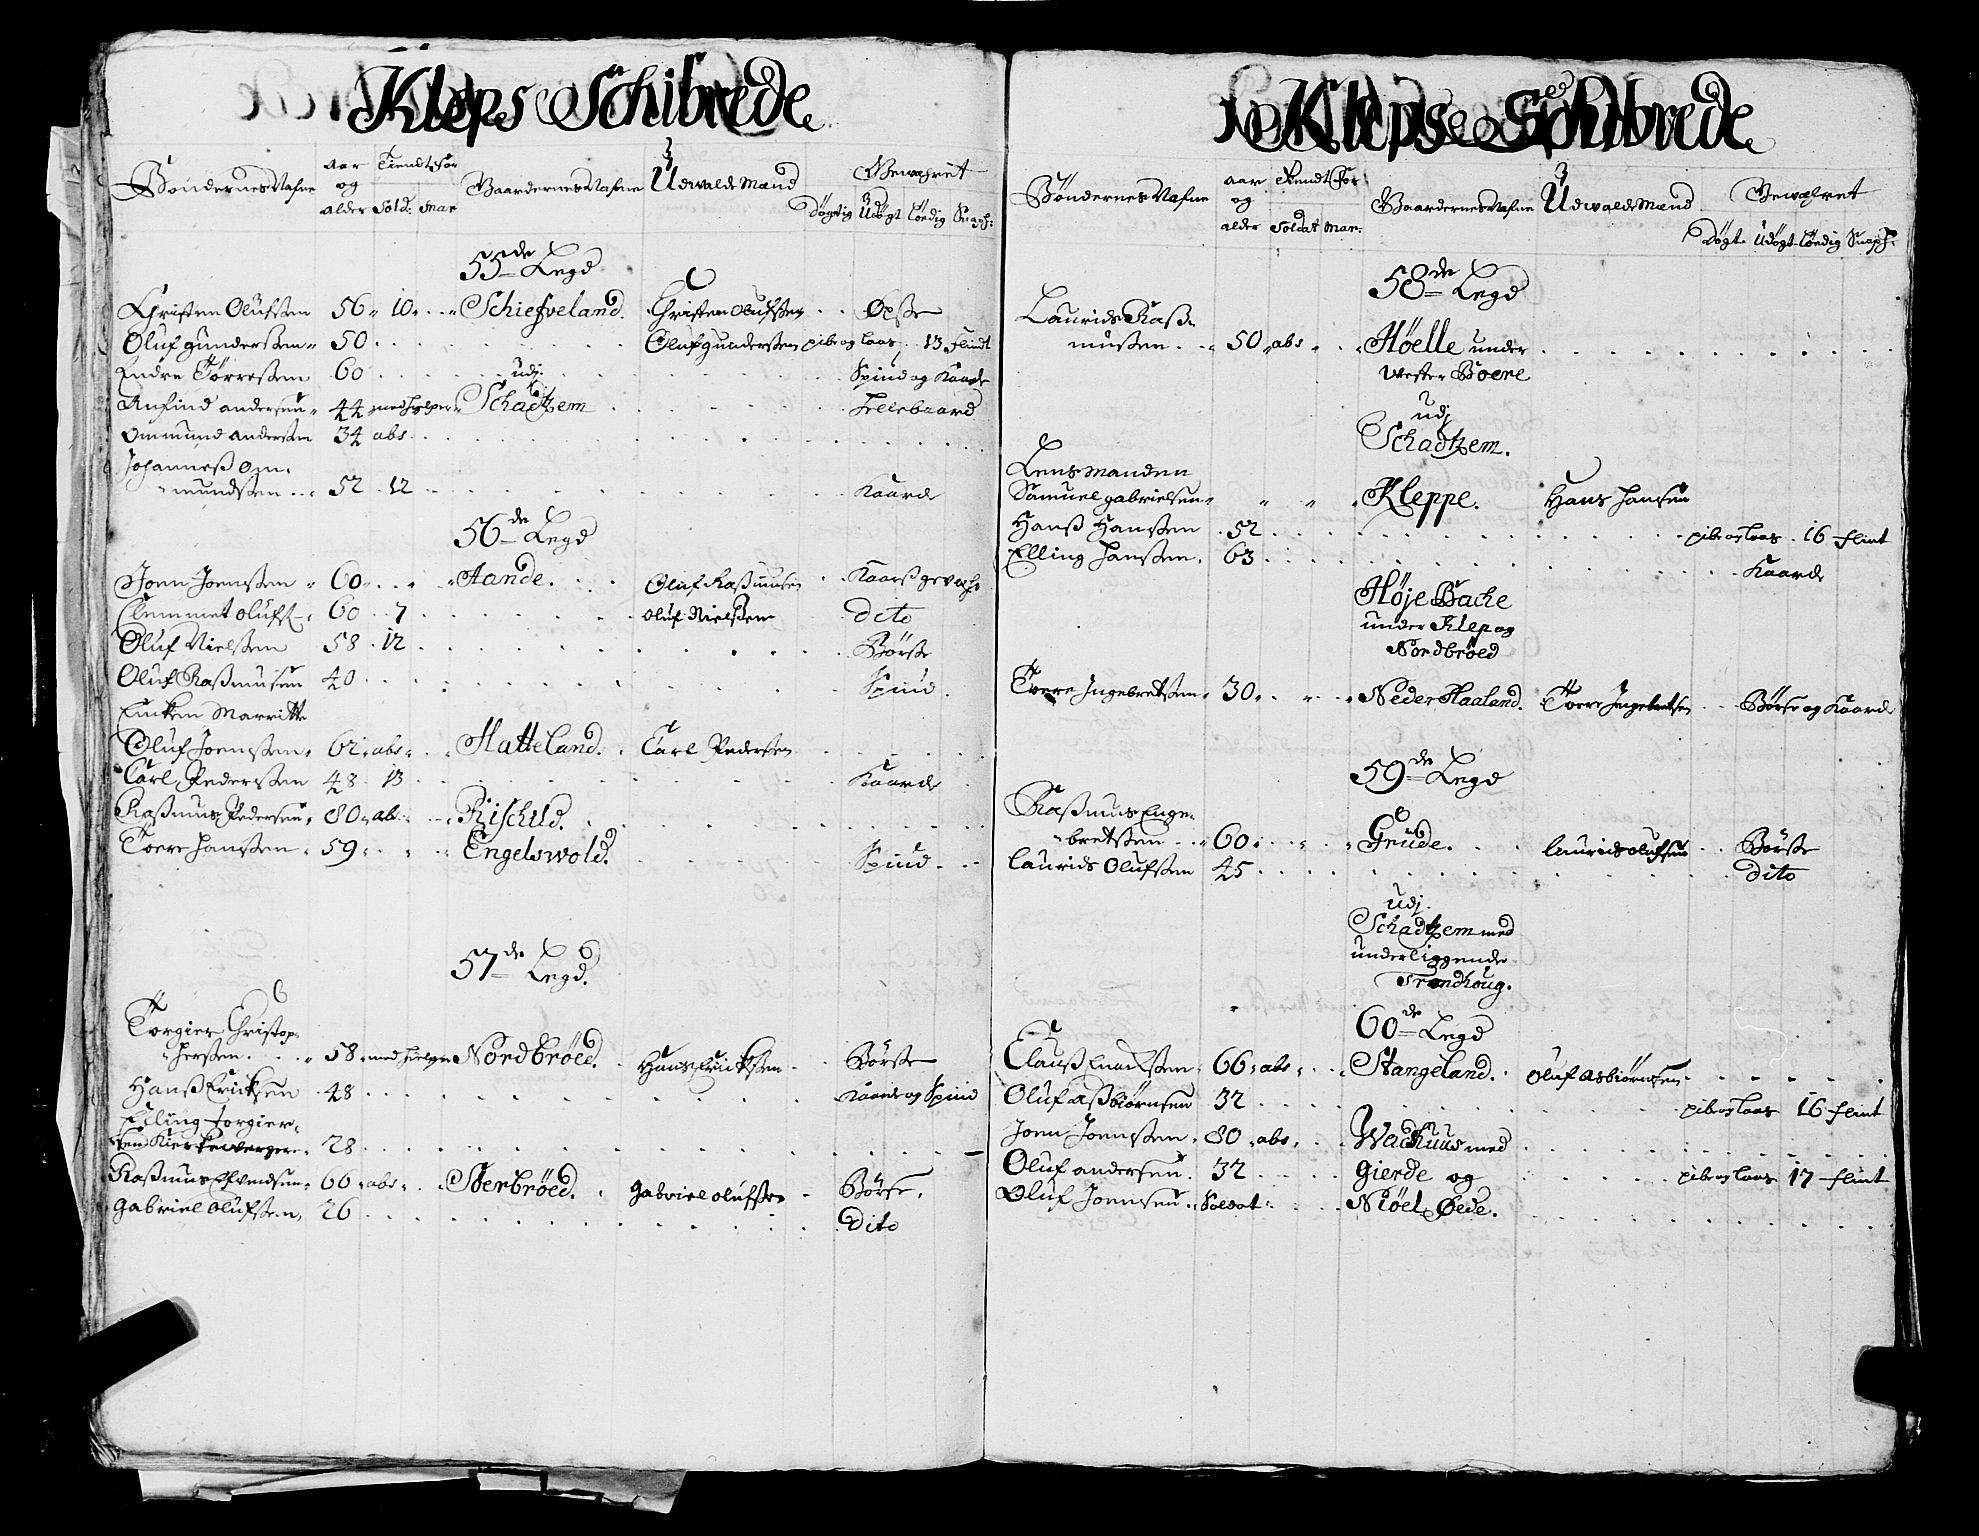 Kleps Schibrede
Bøndernes Nafne aar og alder Tient for Sold: Mar Gaardernes Nafne Udvalde Mænd Gevæhret
Døgtig Udøgt Lødig Snaph:
55de Legd
Christen Olufsen 56 10 Schiefveland. Christen Olufsen Øxe
Oluf gundersen 50 Oluf gundersen pib og laas 13 flindt
Endre Torresen 60 udj Spiud og Kaarde
Anfind andersen 44 med hielper Schadtzem Hellebaard
Ommund andersen 34 abs
Johanneß Om-
mundsen 52 12 Kaarde
56de Legd
Joen Joensen 60 Aande. Oluf Raßmusen Kaarß gevehr
Clemmet olufs 60 7 Oluf Nielsen dito
Oluf Nielsen 58 12 Børse
Oluf Raßmusen 40 Spiud
Encken Marritte
Oluf Joensen 62 abs Hatteland. Carl Pedersen
Carl Pedersen 48 13 Kaarde
Raßmus Pedersen 80 abs Rischild.
Toere Hansen 59 Engelsvold. Spiud
57de Legd.
Torgier Christop-
hersen 58 med hielper Nordbrøed. Hans Ericksen Børse
Hanß Ericksen 48 Kaarde og Spiud
Elling torgier-
sen Kierkeverger 28
Raßmus Efvindsen 66 abs Sterbrøed. gabriel olufsen Børse
gabriel olufsen 26 Dito
Kleps Schibrede
Bøndernes Nafne aar og alder Tiendt for Soldat Mar: Gaardernes Nafne Udvalde Mænd Gevæhret
Døgt. Udøgt Lødig Snaph:
58de Legd
Laurids Raß-
musen 50 abs Høelle under
Vester Boere
udj
Schadtzem.
Lensmanden
Samuel gabrielsen Kleppe. Hans Hansen
Hanß Hansen 52 pib og laas 16 flint
Elling Hansen 63 Kaarde
Høje Backe
under Klep og
Nordbrøed
Toere Ingebretsen 30 Neder Haaland. Toere Ingebretsen Børse og Kaarde
59de Legd
Raßmus Enge-
bretsen 60 Grude. Laurids olufsen Børse
Laurids Olufsen 45 dito
udj
Schadtzem med
underliggende
Trondhoug.
60de Legd
Clauß Enocksen 66 abs Stangeland. Oluf asbiørnsen
Oluf aßbiørnsen 32 pib og laas 16 flint
Joen Joensen 80 abs Wadhuus med
Oluf andersen 32 gierde og pib og laas 17 flint
Oluf Joensen Soldat Niøel Øede.